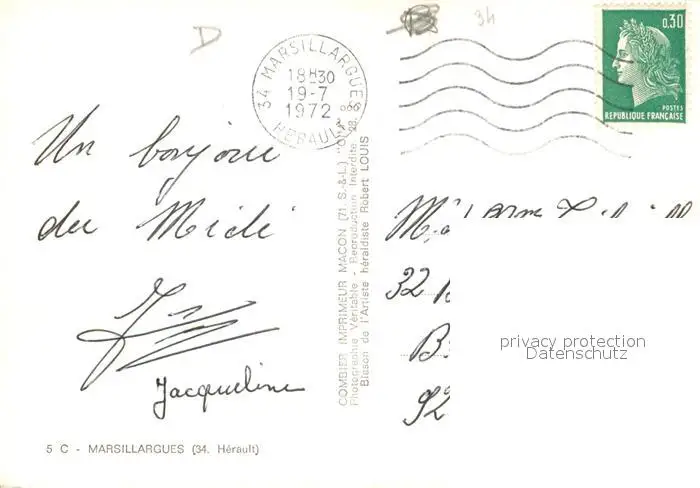 D
34
34 MARSILLARGUES
18H30
19-7
1972
HERAULT
0,30
POSTES
REPUBLIQUE FRANÇAISE
Un bonjour
du Midi
Jacqueline
COMBIER IMPRIMEUR MACON (71. S.-&-L.)
Photographie Véritable - Reproduction Interdite
Blason de l'Artiste héraldiste Robert LOUIS
32
B
92
privacy protection
Datenschutz
5 C - MARSILLARGUES (34. Hérault)